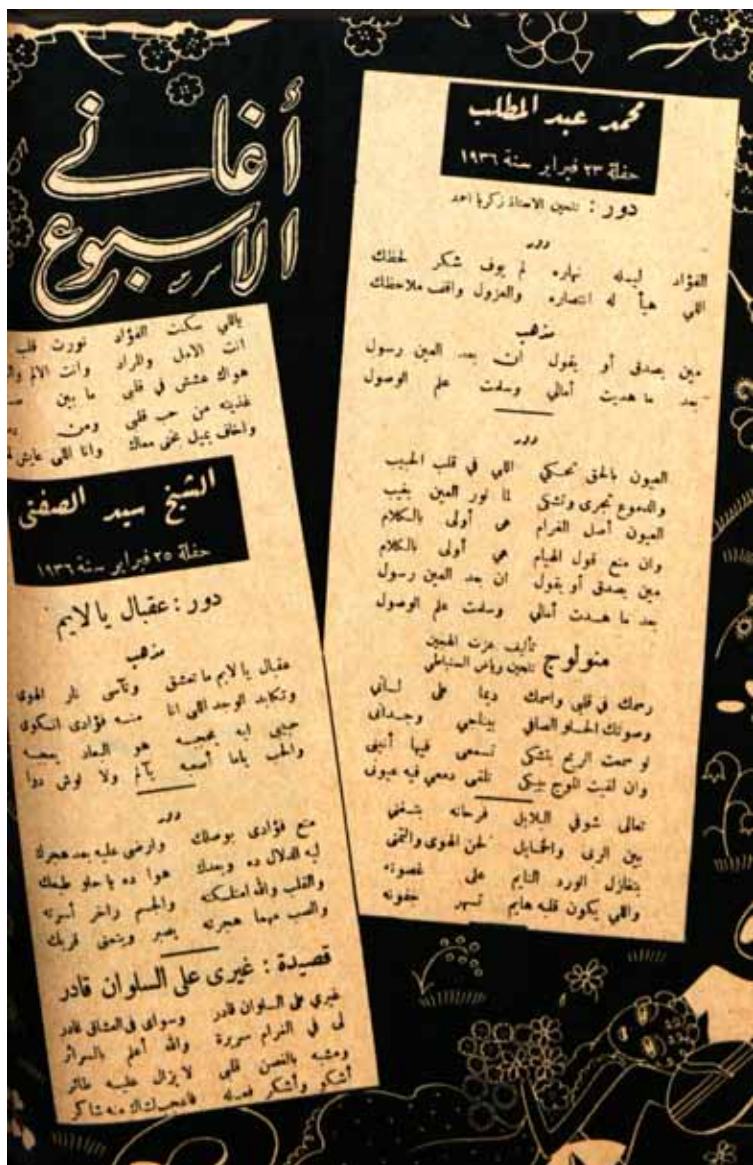 أغاني
الاسبوع
محمد عبد المطلب
حفلة ٢٣ فبراير سنة ١٩٣٦
دور : تلحين الاستاذ زكريا احمد
دور
الفؤاد ليله نهاره لم يوف شكر لحظك
اللي هيأ له انتصاره والعزول واقف ملاحظك
مذهب
مين يصدق أو يقول ان بعد العين رسول
بعد ما هديت أمالي وسلمت علم الوصول
دور
العيون بالحق تحكي اللي في قلب الحبيب
والدموع تجرى وتشكى لما نور العين يغيب
العيون أصل الغرام هي أولى بالكلام
وان منع قول الهيام هي أولى بالكلام
مين يصدق أو يقول ان بعد العين رسول
بعد ما هديت أمالي وسلمت علم الوصول
منولوج تأليف عزت الهجين
تلحين رياض السنباطى
رسمك في قلبي واسمك ديما على لساني
وصوتك الحلو الصافي بيناجي وجدانى
لو سمعت الريح بتشكى تسمعى فيها أنينى
وان لقيت الموج بيبكى تلقى دمعى فيه عيونى
تعالى شوفي البلابل فرحانه بتغني
بين الربى والخمايل لحن الهوى والتمنى
بتغازل الورد النايم على غصونه
واللي يكون قلبه هايم تسهر جفونه
ياللي سكنت الفؤاد نورت قلب
انت الامل والمراد وانت الالم
هواك عشش في قلبي ما بين
غذيته من حب قلبي ومن
واخاف يميل عنى معاك وانا اللى عايش
الشيخ سيد الصفتى
حفلة ٢٥ فبراير سنة ١٩٣٦
دور : عقبال يا لايم
مذهب
عقبال يا لايم ما تعشق وتآسى نار الهوى
وتكابد الوجد اللى انا منه فؤادى انكوى
حبيبى ايه يعجبه هو البعاد يعجبه
والحب ياما أصعبه يألم ولا لوش دوا
دور
متع فؤادى بوصلك وارضى عليه بعد هجرك
ليه الدلال ده وبعدك هوا ده يا حلو طبعك
والقلب والله امتلكته والجسم راخر أسرته
والصب مهما هجرته يصبر ويتمنى قربك
قصيدة : غيرى على السلوان قادر
غيرى على السلوان قادر وسواى فى العشاق غادر
لى في الغرام سريرة والله أعلم بالسرائر
ومشبه بالغصن قلبي لا يزال عليه طائر
أشكو وأشكر فعله فاعجب لشاك منه شاكر